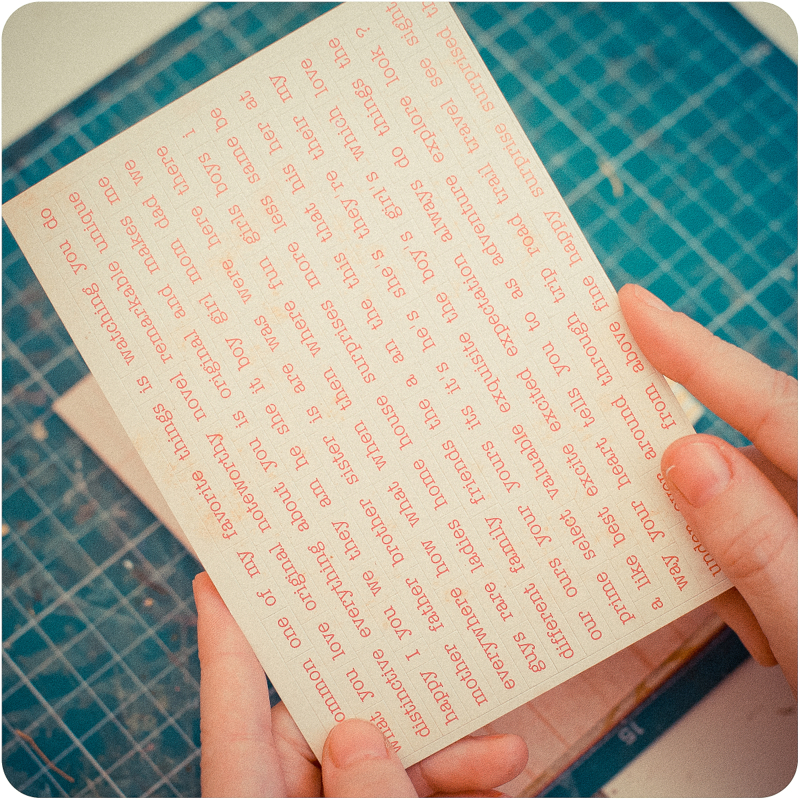 ommon one of my favorite things is watching you do
what you love original noteworthy novel remarkable unique
distinctive everything about you is original and makes me
happy I you we they am he she it boy girl mom dad we
mother father brother sister is are was were here there
everywhere how what when then where fun girls boys i
guys rare ladies home house surprises more less same be
different family friends the a an the this that his her at
our ours your yours its it's he's she's they're their my
prime select valuable exquisite the boy's girl's which love
a like best excite excited expectation always do things the
way your heart tells you to as adventure explore look ?
under around through trip road trail travel see sight
from above fine happy surprise surprised th